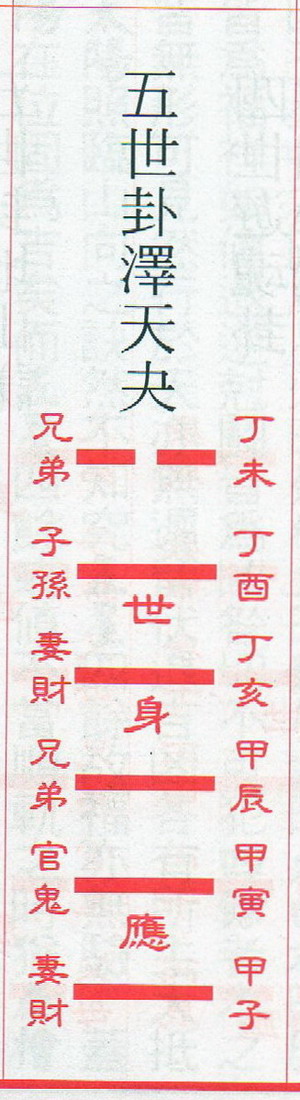 五世卦澤天夬
丁未
兄弟
丁酉
子孫
世
丁亥
妻財
身
甲辰
兄弟
甲寅
官鬼
應
甲子
妻財